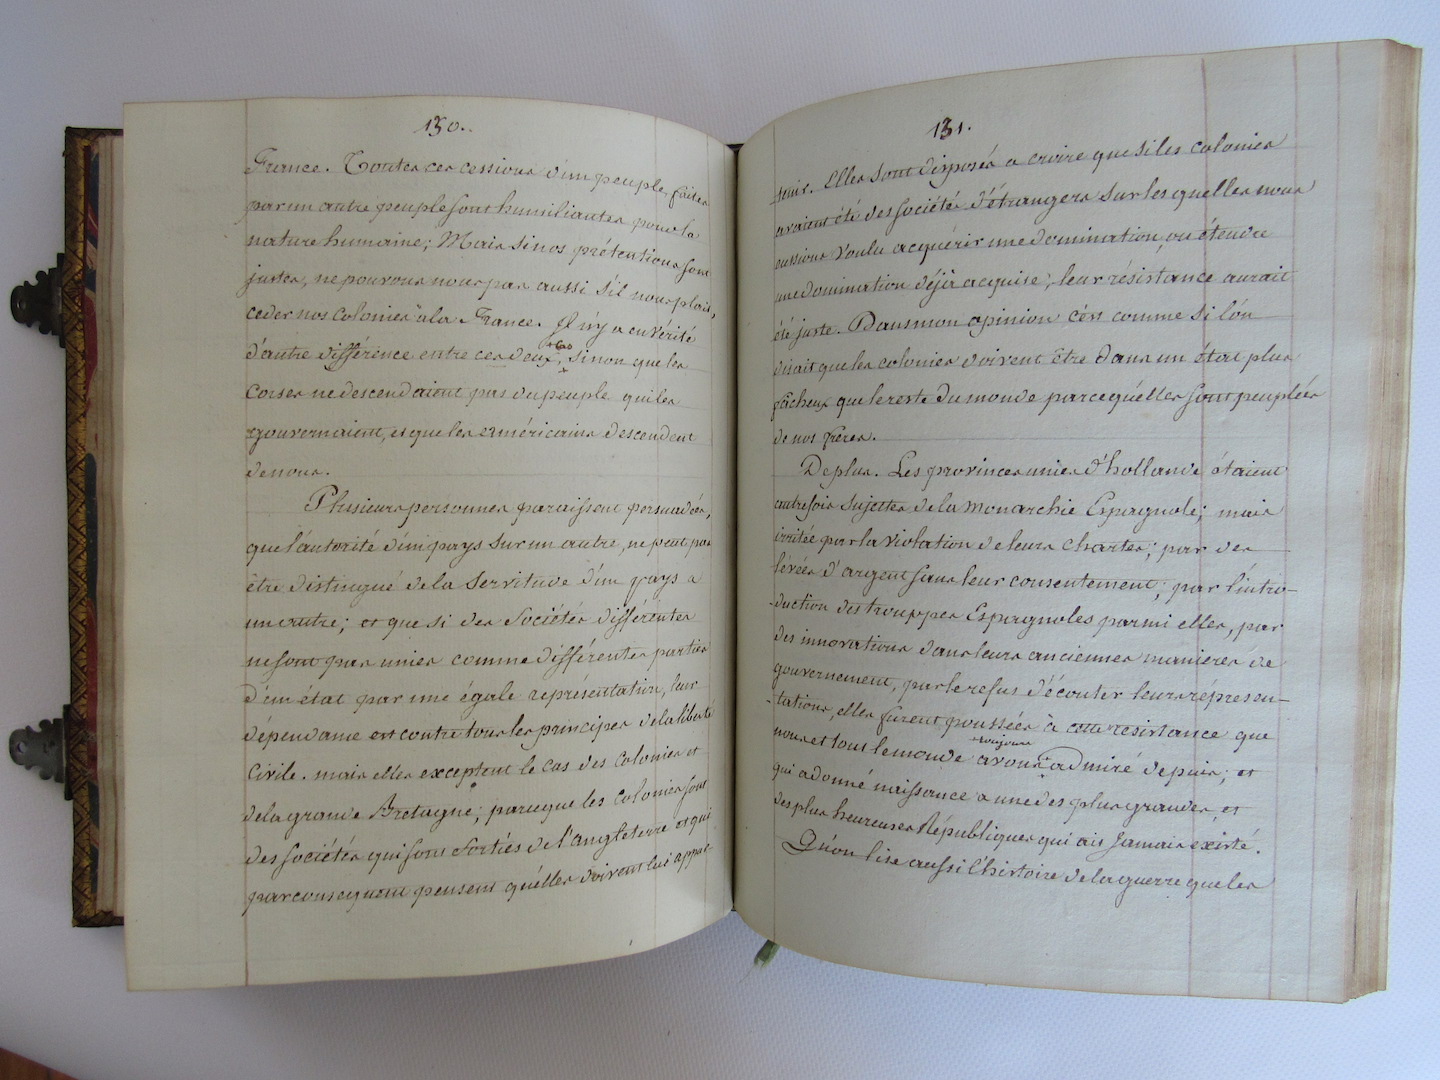 130.
France. Toutes ces cessions d'un peuple, faites
par un autre peuple sont humiliantes pour la
nature humaine; Mais si nos prétentions sont
justes, ne pouvons nous pas aussi s'il nous plait,
ceder nos colonies à la France. Il n'y a en vérité
d'autre différence entre ces deux cas, sinon que les
Corses ne descendaient pas du peuple qui les
gouvernaient, et que les américains descendent
de nous.
Plusieurs personnes paraissent persuadées,
que l'autorité d'un pays sur un autre, ne peut pas
être distingué de la Servitude d'un pays a
un autre; et que si des Sociétés différentes
ne sont pas unies comme différentes parties
d'un état par une égale représentation, leur
dépendance est contre tous les principes de la liberté
Civile. mais elles exceptent le cas des Colonies et
de la grande Bretagne; parceque les colonies sont
des sociétés qui sont sorties de l'angleterre et qui
par consequent pensent qu'elles doivent lui appar-
131.
tenir. Elles sont disposés a croire que si les colonies
avaient été des société d'étrangers sur les quelles nous
eussions voulu acquérir une domination, ou étendre
une domination déjà acquise; leur résistance aurait
été juste. Dans mon opinion c'est comme si l'on
disait que les colonies doivent être dans un état plus
fâcheux que le reste du monde parce qu'elles sont peuplées
de nos frères.
De plus. Les provinces unies d'hollande étaient
autrefois sujettes de la monarchie Espagnole; mais
irritée par la violation de leurs chartes; par des
lévées d'argent sans leur consentement; par l'intro-
-duction des trouppes Espagnoles parmi elles, par
des innovations dans leurs anciennes manieres de
gouvernement, par le refus d'écouter leurs répresen-
-tations, elles furent poussées à cette résistance que
nous et tous le monde avons toujours admiré depuis; et
qui a donné naissance a une des plus grandes, et
des plus heureuses Républiques qui ais Jamais existé.
Qu'on lise aussi l'histoire de la guerre que les